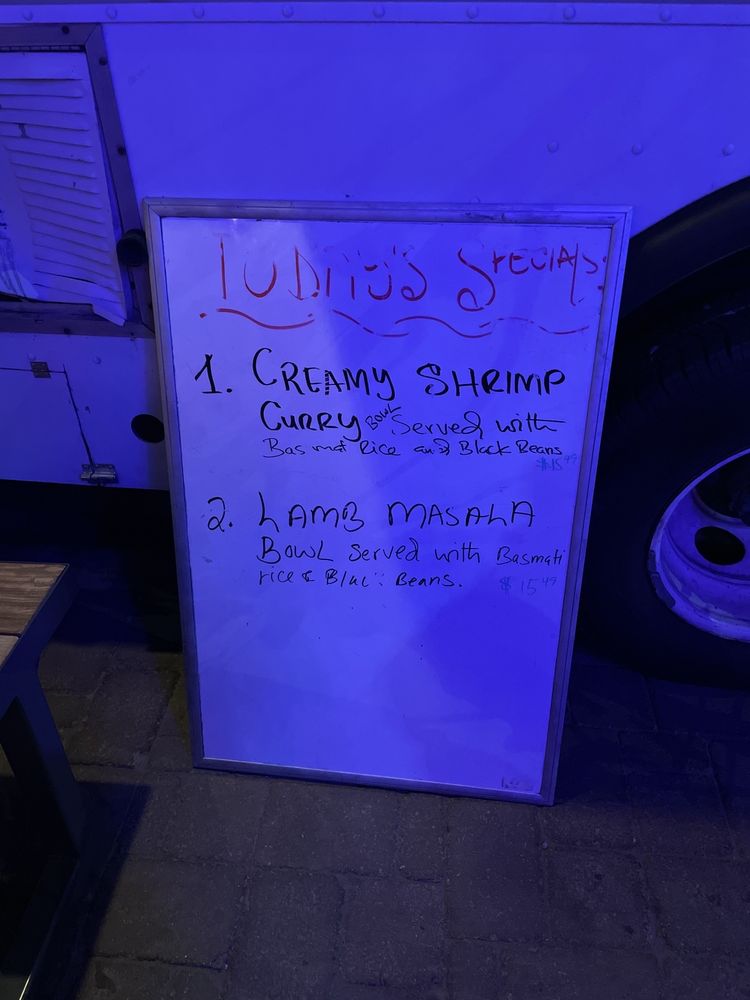 SPECIALS:
1. CREAMY SHRIMP
CURRY BOWL Served with
Basmat Rice and Black Beans
$15 49
2. LAMB MASALA
BOWL Served with Basmati
rice & Beans.
$15 49